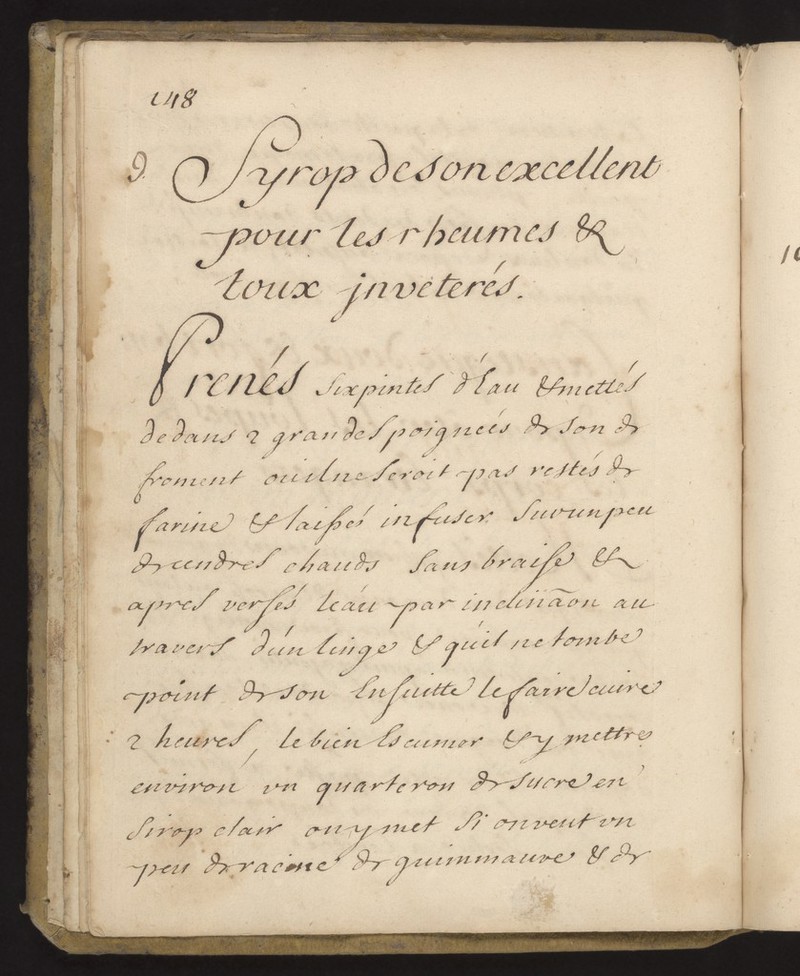 148
9. Syrop de son excellent
pour les rheumes &
toux jnveterés.
Prenés six pintes d'Eau & mettés
dedans 2 grandes poigneés de son de
froment ou il ne seroit pas restés de
farine & laissés infuser sur un peu
de cendres chauds sans braise &
apres versés leáu par incliñaõn au
travers dún linge & quíl ne tombe
point de son Ensuitte le faire cuire
2 heures, le bien Escumer & y mettre
environ vn quarteron de sucre en
sirop clair on y met si on veut vn
peu de racine de guimmauve & de
10